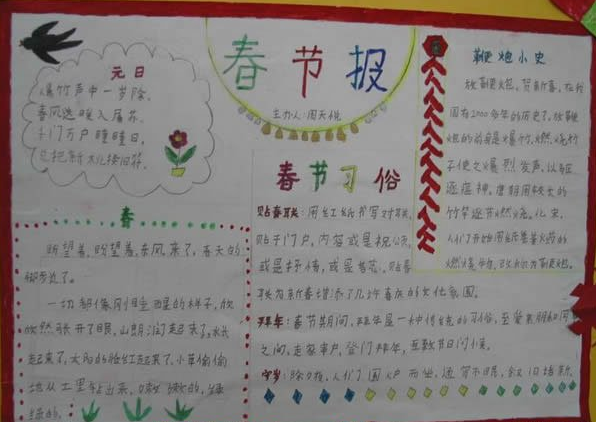 春节报
主办人:周天悦
元日
爆竹声中一岁除,
春风送暖入屠苏。
千门万户瞳瞳日,
总把新桃换旧符。
春
盼望着,盼望着,东风来了,春天的
脚步近了。
一切都像刚睡醒的样子,欣
欣然张开了眼,山朗润起来了,水长
起来了,太阳的脸红起来了,小草偷偷
地从土里钻出来,嫩嫩的,绿
绿的。
春节习俗
贴春联:用红纸书写对联,
贴于门户,内容或是祝公
或是抒情,或是
为新春增添了几许喜庆的文化氛围。
拜年:春节期间,拜年是一种传统的习俗,至爱亲朋和同
之间,走家串户,登门拜年,互致节日问候。
守岁:除夕夜,人们围火炉而坐,通宵不寐,叙旧话新
鞭炮小史
放鞭炮,贺新春,在我
国有2000多年的历史了,放鞭
炮的前身是爆竹,燃烧竹
子使之爆烈发声,以
逐瘟神,唐朝用较长的
竹竿逐节燃烧,
人们开始用纸卷裹火药的
燃烧物,改称为鞭炮。